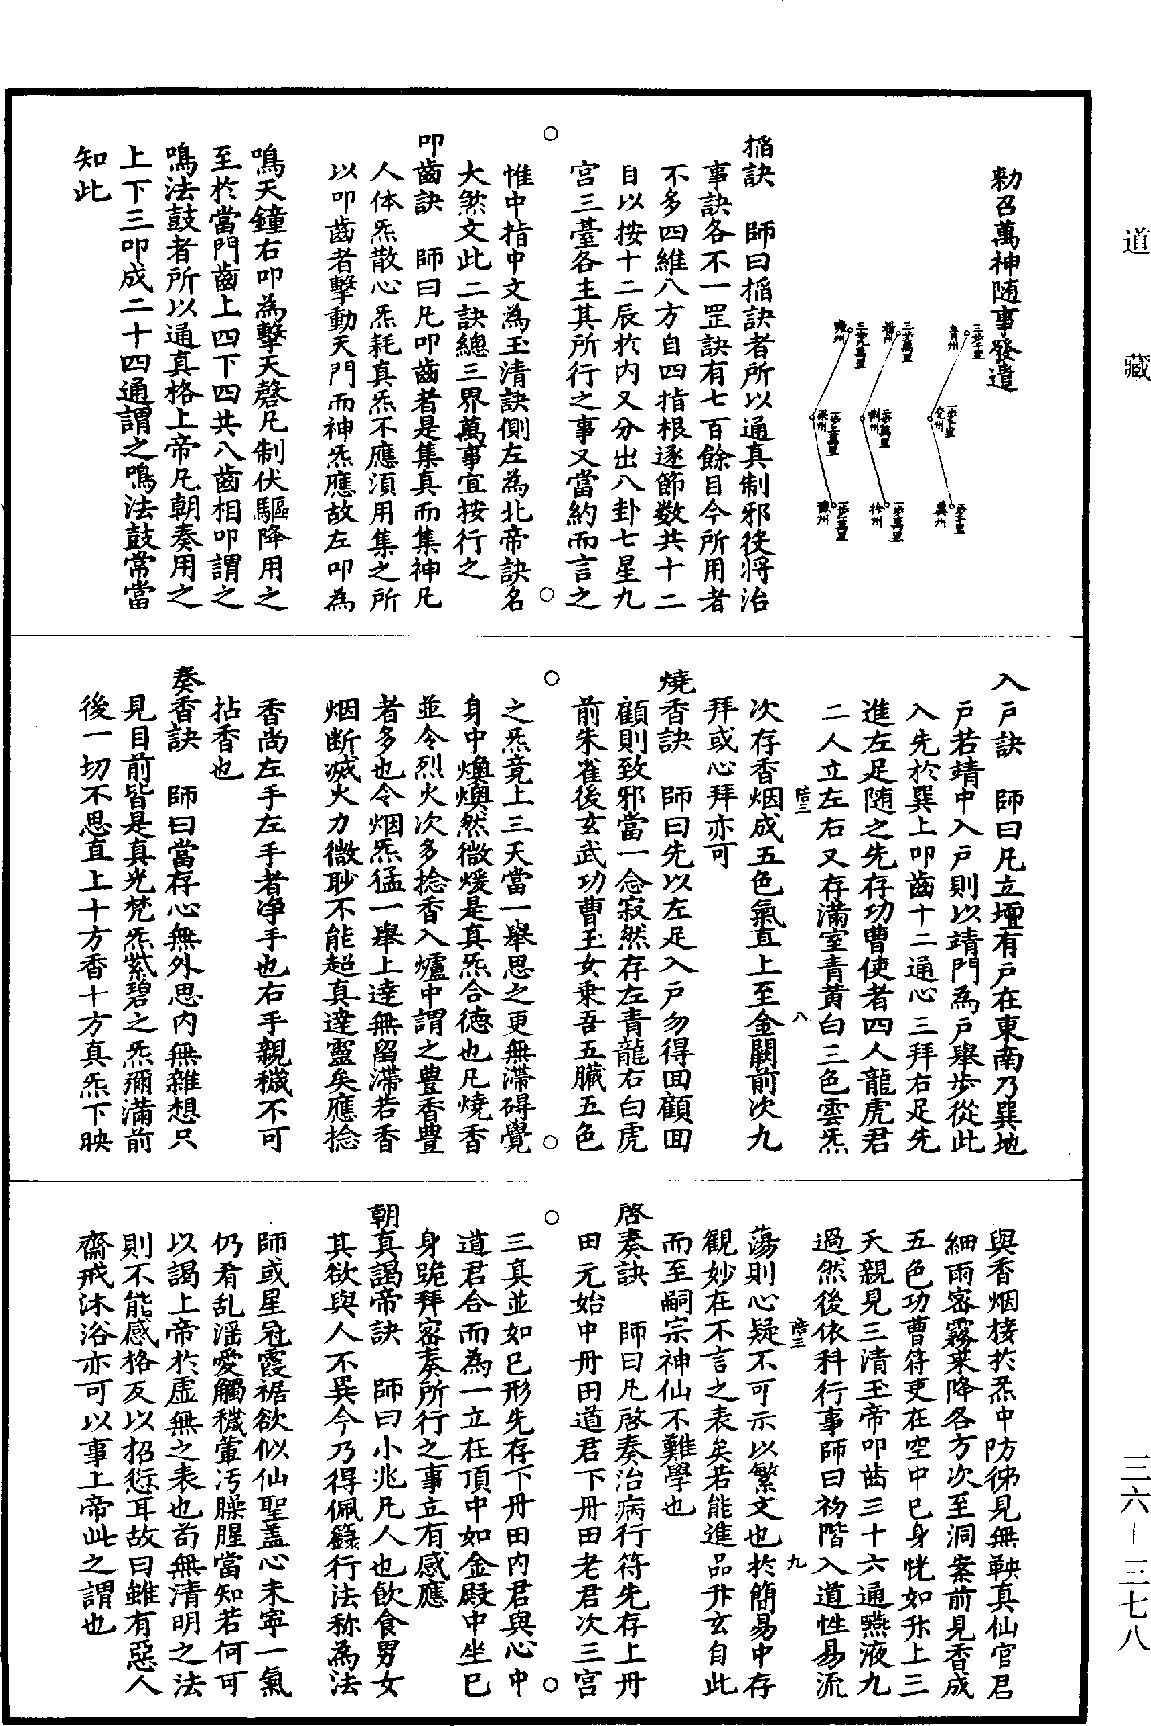 道藏
三六—三七八
勑召萬神隨事發遣
掐訣　師曰掐訣者所以通真制邪役將治
事訣各不一罡訣有七百餘目今所用者
不多四維八方自四指根逐節数共十二
目以按十二辰於内又分出八卦七星九
宮三臺各主其所行之事又當約而言之
惟中指中文為玉清訣側左為北帝訣名
大煞文此二訣總三界萬事宜按行之
叩齒訣　師曰凡叩齒者是集真而集神凡
人体炁散心炁耗真炁不應須用集之所
以叩齒者擊動天門而神炁應故左叩為
鳴天鐘右叩為擊天磬凡制伏驅降用之
至於當門齒上四下四共八齒相叩謂之
鳴法鼓者所以通真格上帝凡朝奏用之
上下三叩成二十四通謂之鳴法鼓常當
知此
入戶訣　師曰凡立壇有戶在東南乃巽地
戶若靖中入戶則以靖門為戶舉步從此
入先於巽上叩齒十二通心三拜右足先
進左足随之先存功曹使者四人龍虎君
二人立左右又存滿室青黃白三色雲炁
次存香烟成五色氣直上至金闕前次九
拜或心拜亦可
燒香訣　師曰先以左足入戶勿得回顧回
顧則致邪當一念寂然存左青龍右白虎
前朱雀後玄武功曹玉女乘吾五臟五色
之炁竟上三天當一舉思之更無滯碍覺
身中煥煥然微煖是真炁合德也凡燒香
並令烈火次多捻香入爐中謂之豊香豊
者多也令烟炁猛一舉上達無留滯若香
烟断滅火力微眇不能超真達靈矣應捻
香尚左手左手者净手也右手親穢不可
拈香也
奏香訣　師曰當存心無外思内無雜想只
見目前皆是真光梵炁紫碧之炁彌滿前
後一切不思直上十方香十方真炁下映
與香烟接於炁中防彿見無鞅真仙官君
細雨密霧來降各方次至洞案前見香成
五色功曹符吏在空中已身恍如升上三
天親見三清玉帝叩齒三十六通嚥液九
過然後依科行事師曰初階入道性易流
蕩則心疑不可示以繁文也於簡易中存
觀妙在不言之表矣若能進品升玄自此
而至嗣宗神仙不難學也
啓奏訣　師曰凡啓奏治病行符先存上丹
田元始中丹田道君下丹田老君次三宮
三真並如已形先存下丹田内君與心中
道君合而為一立在頂中如金殿中坐已
身跪拜密奏所行之事立有感應
朝真謁帝訣　師曰小兆凡人也飲食男女
其欲與人不異今乃得佩籙行法称為法
師或星冠霞裾欲似仙聖盖心未寧一氣
仍肴乱滛愛觸穢葷汚臊腥當知若何可
以謁上帝於虚無之表也苟無清明之法
則不能感格反以招愆耳故曰雖有惡人
齋戒沐浴亦可以事上帝此之謂也
陸三
八
陸三
九